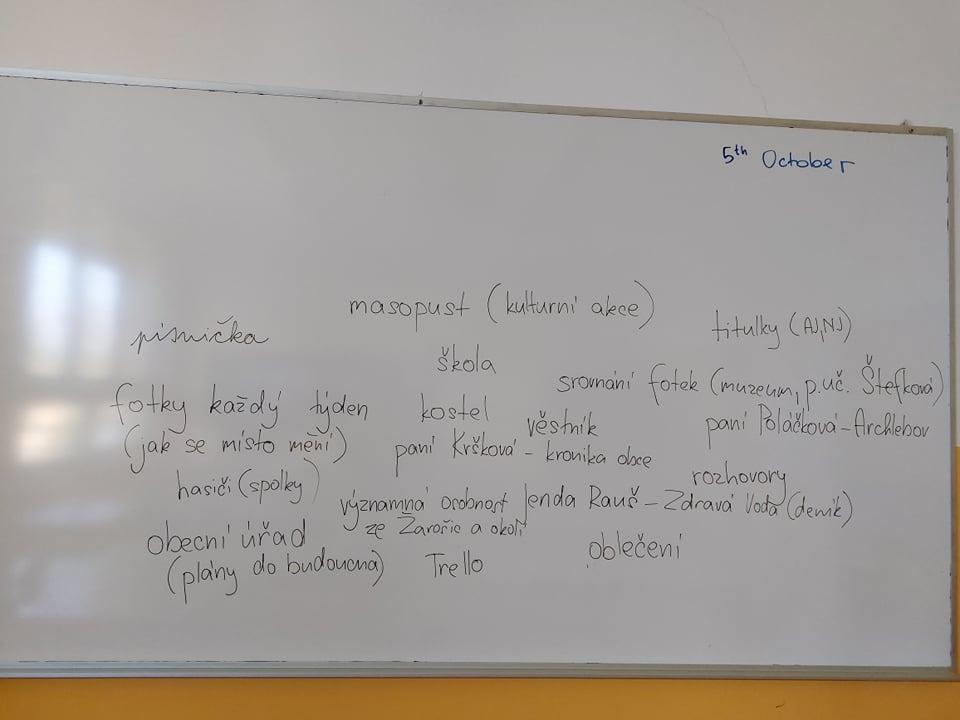 5th October
masopust (kulturní akce)
písnička
titulky (AJ, NJ)
škola
srovnání fotek (muzeum, p. uč. Štefková)
fotky každý týden
(jak se místo mění)
kostel
věstník
paní Poláčková - Archlebov
paní Kršková - kronika obce
hasiči (spolky)
rozhovory
významná osobnost Jenda Rauš - Zdravá Voda (deník)
ze Žarošic a okolí
obecní úřad
(plány do budoucna)
Trello
oblečení